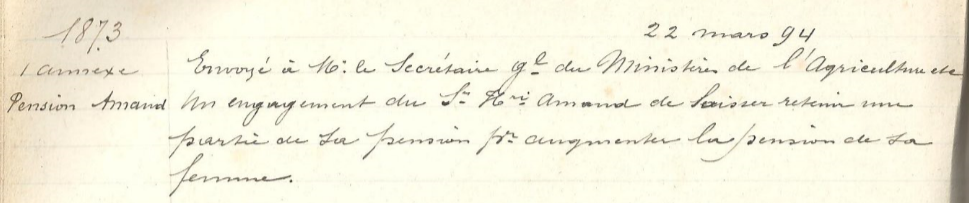 1873
22 mars 94
1 annexe
Envoyé à Mr. le Secrétaire gl du Ministère de l'Agriculture etc
Pension Amand
Un engagement du Sr Hri Amand de laisser retenir une
partie de sa pension pr augmenter la pension de sa
femme.